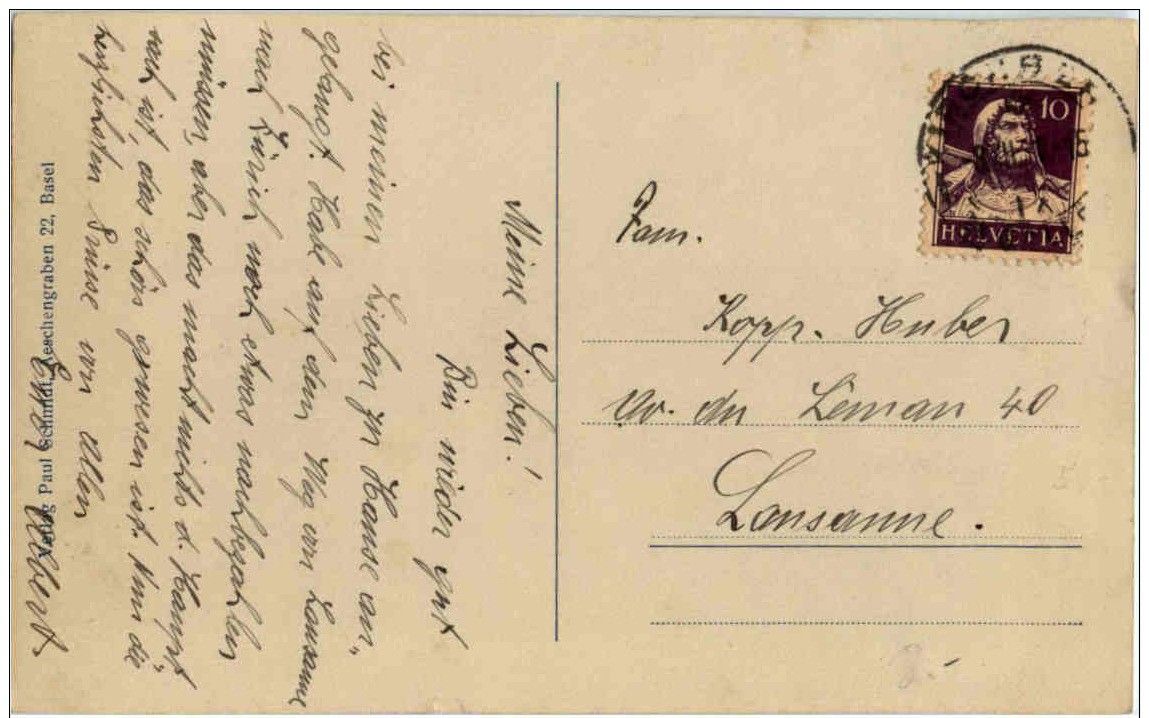 Meine Lieben!
Bin wieder gut
bei meinen Lieben zu Hause an„
gelangt. Habe auf dem Weg von Lausanne
nach Zürich noch etwas nachbezahlen
müssen, aber das macht nichts d. Haupt„
sach ist, das schön gewesen ist. Nun die
herzlichsten Grüsse von Allen
Albert
Verlag Paul Schmidt, Aeschengraben 22, Basel
10
HELVETIA
Fam.
Kopp-Huber
Av. du Léman 40
Lausanne.